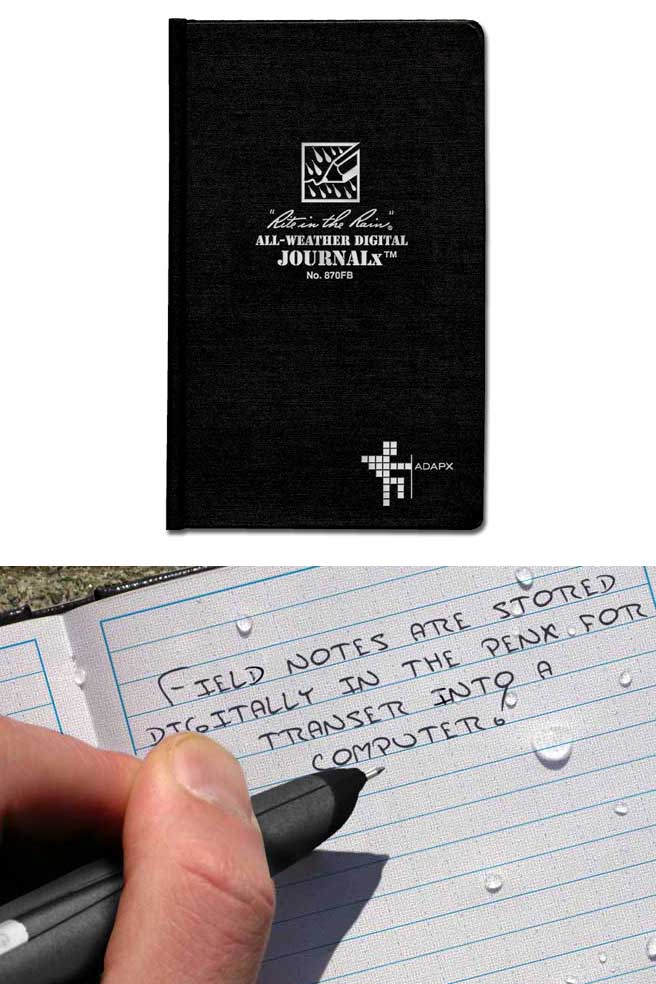 "Rite in the Rain"®
ALL-WEATHER DIGITAL
JOURNALx™
No. 870FB
ADAPX
FIELD NOTES ARE STORED
DIGITALLY IN THE PENX FOR
TRANSER INTO A
COMPUTER!